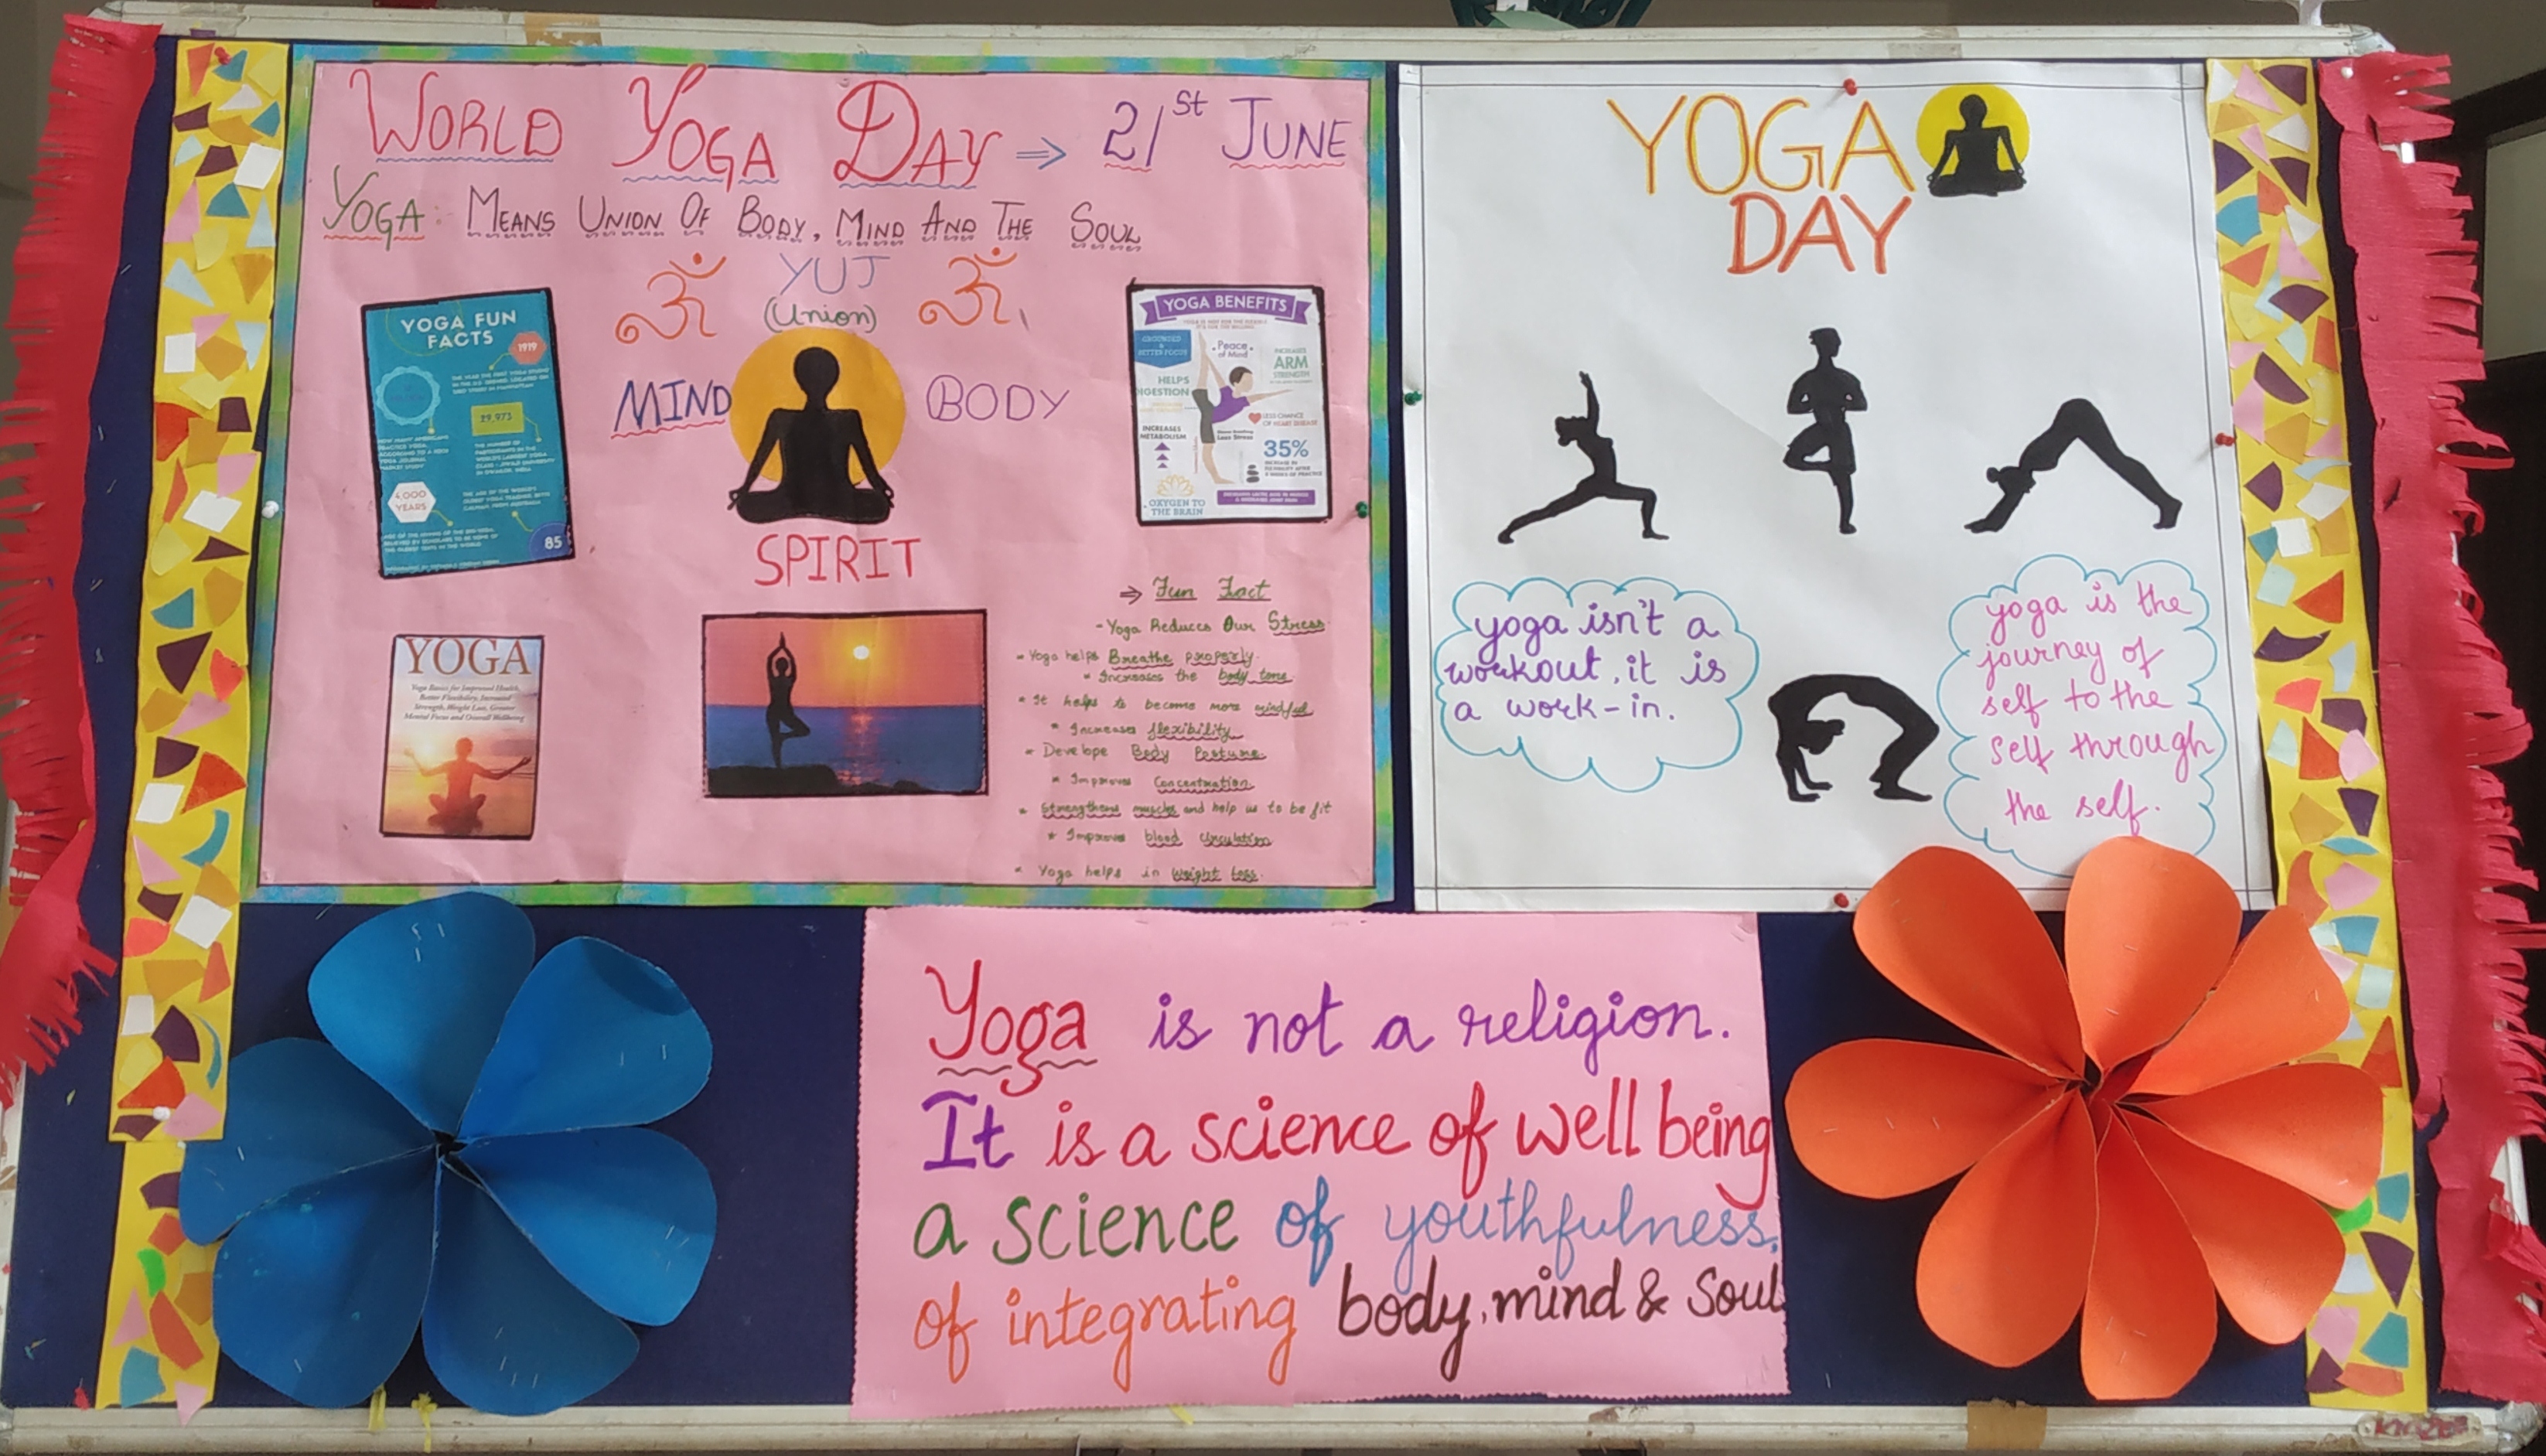 WORLD YOGA DAY ⇒ 21st JUNE
YOGA: MEANS UNION OF BODY, MIND AND THE SOUL
ॐ YUJ ॐ
(Union)
MIND BODY
SPIRIT
YOGA FUN
FACTS
1919
THE YEAR THE FIRST YOGA STUDIO
29,973
THE NUMBER OF
PARTICIPANTS IN THE
WORLD'S LARGEST YOGA
4,000
YEARS
85
YOGA BENEFITS
GROUNDED
&
BETTER FOCUS
Peace
of Mind
INCREASES
ARM
STRENGTH
HELPS
DIGESTION
LESS CHANCE
OF HEART DISEASE
INCREASES
METABOLISM
Less Stress
35%
OXYGEN TO
THE BRAIN
YOGA
Yoga Basics for Improved Health,
Better Flexibility, Increased
Strength, Weight Loss, Greater
Mental Focus and Overall Wellbeing
⇒ Fun Fact
- Yoga Reduces Our Stress.
* Yoga helps Breathe properly.
* Increases the body tone.
* It helps to become more mindful
* Increases flexibility
* Develope Body Posture
* Improves Concentration
* Strengthens muscles and help us to be fit
* Improves blood circulation
* Yoga helps in Weight Loss.
YOGA
DAY
yoga isn't a
workout, it is
a work-in.
yoga is the
journey of
self to the
self through
the self.
Yoga is not a religion.
It is a science of well being
a science of youthfulness,
of integrating body, mind & Soul